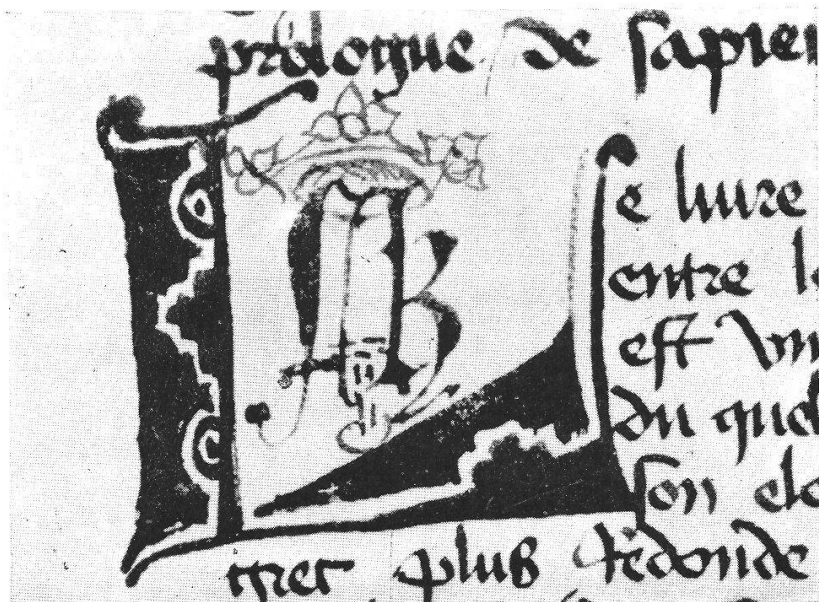 prologue de sapien
Le liure
entre le
est vn
du quel
son elo
grec plus redonde